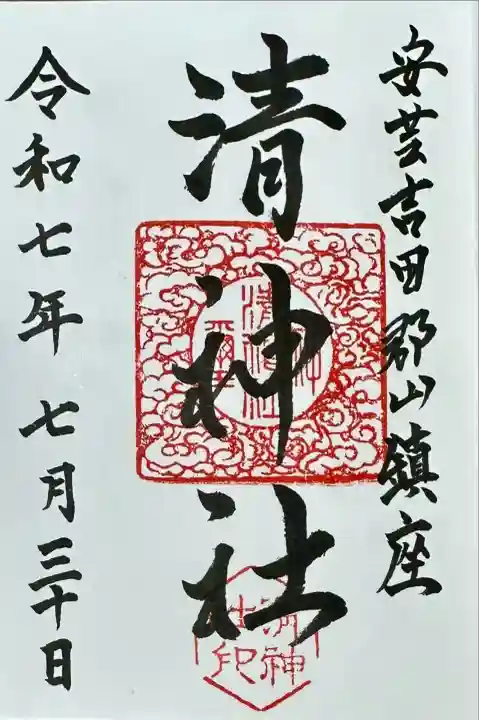 安芸吉田郡山鎮座
清神社
令和七年七月三十日
清神
社印